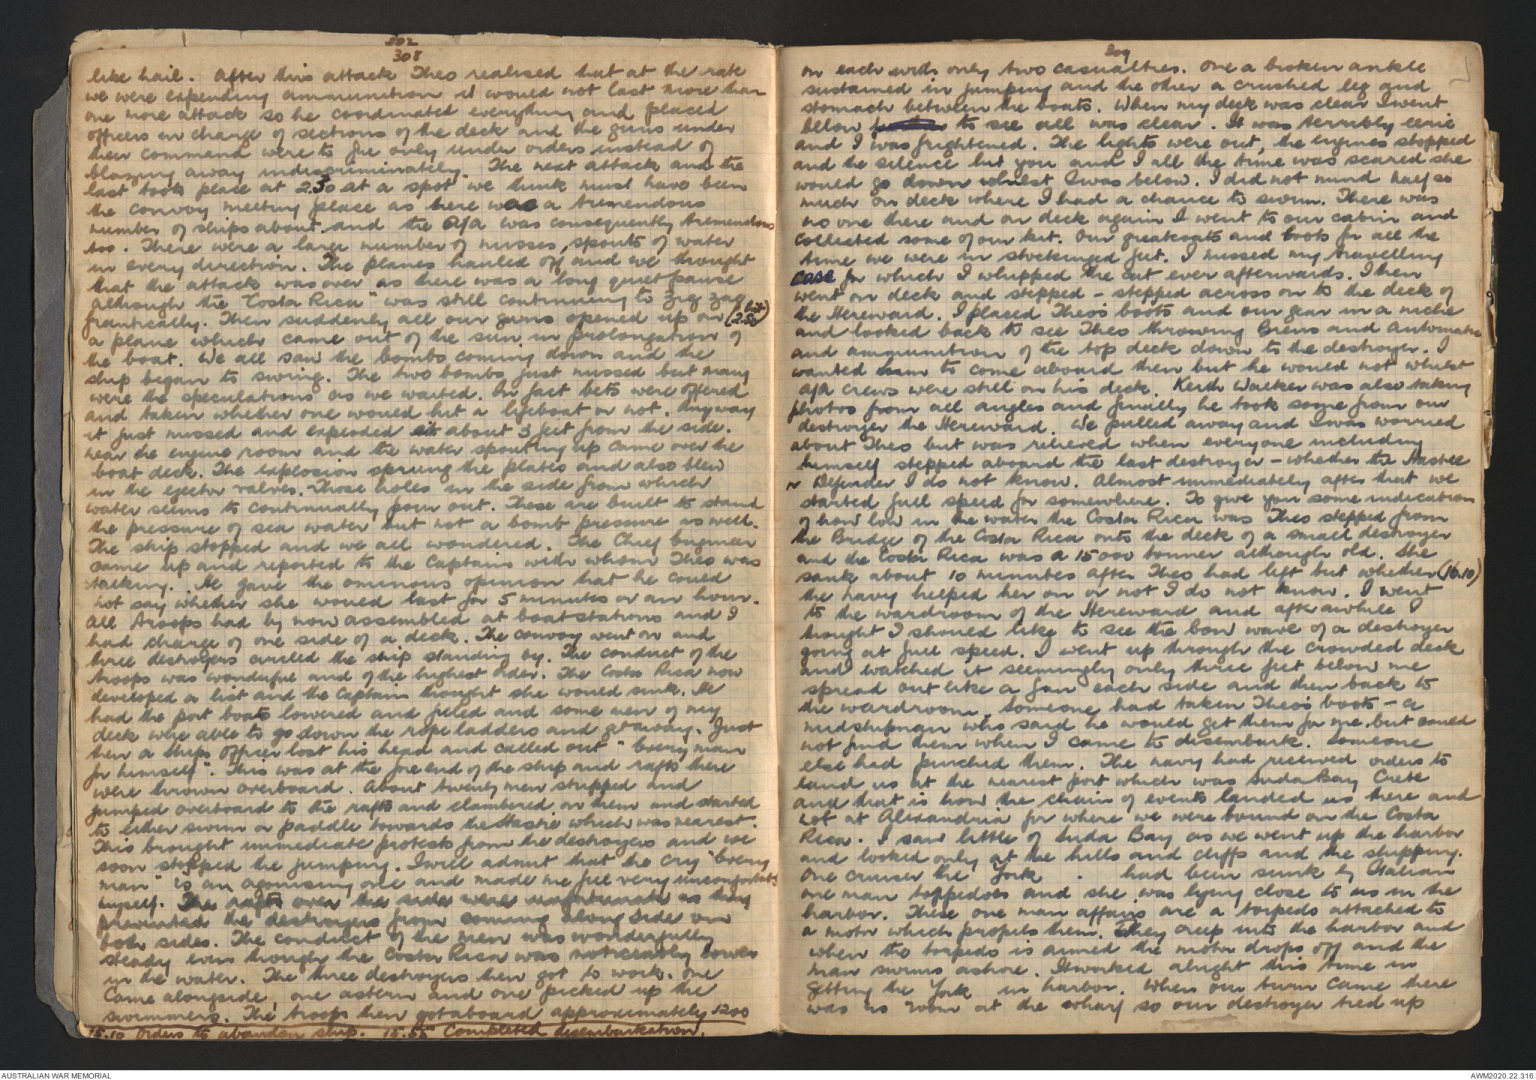 302
308
like hail. After this attack Theo realised that at the rate
we were expending ammunition it would not last more than
one more attack so he coordinated everything and placed
officers in charge of sections of the deck and the guns under
their command were to fire only under orders instead of
blazing away indiscriminately. The next attack and the
last took place at 2.30 at a spot we think must have been
the convoy meeting place as there was a tremendous
number of ships about and the A/A was consequently tremendous
too. There were a large number of misses, spouts of water
in every direction. The planes hauled off and we thought
that the attack was over as there was a long quiet pause
although the "Costa Rica" was still continuing to zig zag
frantically. Then suddenly all our guns opened up on (2.50)
a plane which came out of the sun in prolongation of
the boat. We all saw the bombs coming down and the
ship began to swing. The two bombs just missed but many
were the speculations as we waited. In fact bets were offered
and taken whether one would hit a lifeboat or not. Anyway
it just missed and exploded about 3 feet from the side.
near the engine room and the water spouting up came over the
boat deck. The explosion sprung the plates and also blew
in the ejector valves. Those holes in the side from which
water seems to continually pour out. These are built to stand
the pressure of sea water but not a bomb pressure as well.
The ship stopped and we all wondered. The Chief Engineer
came up and reported to the Captain with whom Theo was
talking. He gave the ominous opinion that he could
not say whether she would last for 5 minutes or an hour.
All troops had by now assembled at boat stations and I
had charge of one side of a deck. The convoy went on and
three destroyers circled the ship standing by. The conduct of the
troops was wonderful and of the highest order. The Costa Rica now
developed a list and the Captain thought she would sink. He
had the port boats lowered and filled and some men of my
deck were able to go down the rope ladders and get away. Just
then a ships officer lost his head and called out "Every man
for himself". This was at the fore end of the ship and rafts there
were thrown overboard. About twenty men stripped and
jumped overboard to the rafts and clambered on them and started
to either swim or paddle towards the Hastie which was nearest.
This brought immediate protests from the destroyers and we
soon stopped the jumping. I will admit that the cry "Every
man" is an agonising one and made me feel very uncomfortable
myself. The rafts over the side were unfortunate as they
prevented the destroyers from coming alongside on
both sides. The conduct of the men was wonderfully
steady even though the Costa Rica was noticeably lower
in the water. The three destroyers then got to work. One
came alongside, one astern and one picked up the
swimmers. The troops then got aboard approximately 1200
15.10 Orders to abandon ship. 15.55 Completed disembarkation.
309
on each with only two casualties. One a broken ankle
sustained in jumping and the other a crushed leg and
stomach between the boats. When my deck was clear I went
below to see all was clear. It was terribly eerie
and I was frightened. The lights were out, the engines stopped
and the silence but you and I all the time was scared she
would go down whilst I was below. I did not mind half so
much on deck where I had a chance to swim. There was
no one there and on deck again I went to our cabin and
collected some of our kit. Our greatcoats and boots for all the
time we were in stockinged feet. I missed my travelling
case for which I whipped the cat ever afterwards. I then
went on deck and stepped - stepped across on to the deck of
the Hereward. I placed Theo's boots and our gear in a niche
and looked back to see Theo throwing Brens and automatics
and ammunition of the top deck down to the destroyer. I
wanted him to come aboard then but he would not whilst
A/A crews were still on his deck. Keith Walker was also taking
photos from all angles and finally he took some from our
destroyer the Hereward. We pulled away and I was worried
about Theo but was relieved when everyone including
himself stepped aboard the last destroyer - whether the Hastie
or Defender I do not know. Almost immediately after that we
started full speed for somewhere. To give you some indication
of how low in the water the Costa Rica was Theo stepped from
the Bridge of the Costa Rica onto the deck of a small destroyer
and the Costa Rica was a 15000 tonner although old. She
sank about 10 minutes after Theo had left but whether (16.10)
the navy helped her on or not I do not know. I went
to the wardroom of the Hereward and after awhile I
thought I should like to see the bow wave of a destroyer
going at full speed. I went up through the crowded deck
and watched it seemingly only three feet below me
spread out like a fan each side and then back to
the wardroom. Someone had taken Theo's boots - a
midshipman who said he would get them for me but could
not find them when I came to disembark. Someone
else had pinched them. The navy had received orders to
land us at the nearest port which was Suda Bay Crete
and that is how the chain of events landed us there and
not at Alexandria for where we were bound on the Costa
Rica. I saw little of Suda Bay as we went up the harbor
and looked only at the hills and cliffs and the shipping.
One cruiser the York had been sunk by Italian
one man torpedoes and she was lying close to us in the
harbor. These one man affairs are a torpedo attached to
a motor which propels them. They creep into the harbor and
when the torpedo is aimed the motor drops off and the
man swims ashore. It worked alright this time in
getting the York in harbor. When our turn came there
was no room at the wharf so our destroyer tied up
AUSTRALIAN WAR MEMORIAL
AWM2020.22.316